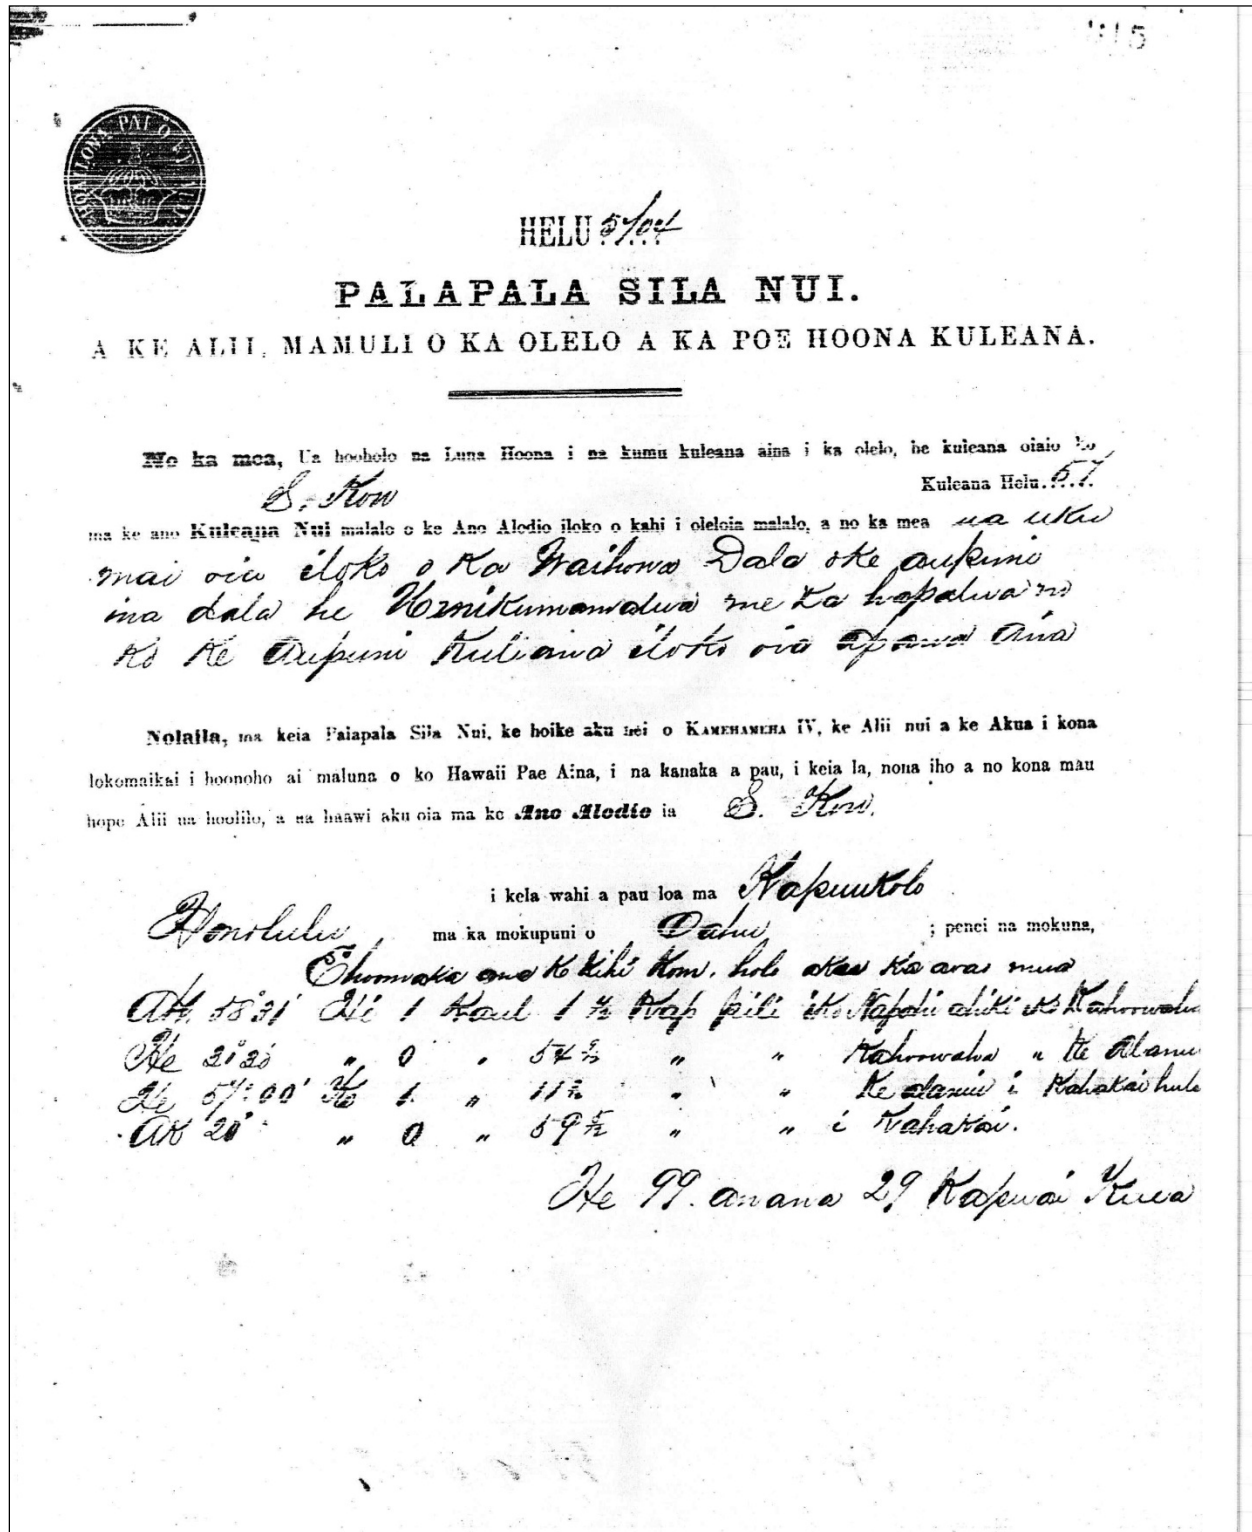 HELU 5704
PALAPALA SILA NUI.
A KE ALII, MAMULI O KA OLELO A KA POE HOONA KULEANA.
No ka mea, Ua hooholo na Luna Hoona i na kumu kuleana aina i ka olelo, he kuleana oiaio ko
S. Kow Kuleana Helu..57..
ma ke ano Kuleana Nui malalo o ke Ano Alodio iloko o kahi i oleloia malalo, a no ka mea ua uku
mai oia iloko o Ka Waihona Dala o ke aupuni
ina dala he Umikumamalua me ka hapalua no
ko Ke Aupuni Kuliana iloko oia apana Aina
Nolaila, ma keia Palapala Sila Nui, ke hoike aku nei o KAMEHAMEHA IV, ke Alii nui a ke Akua i kona
lokomaikai i hoonoho ai maluna o ko Hawaii Pae Aina, i na kanaka a pau, i keia la, nona iho a no kona mau
hope Alii ua hoolilo, a ua haawi aku oia ma ke Ano Alodio ia S. Kow.
i kela wahi a pau loa ma Kapuukolo
Honolulu, ma ka mokupuni o Oahu ; penei na mokuna,
E hoomaka ana Ke Kihi Kom. holo akau
Ak. 58° 31' Hi 1 Kaul 1 Kap pili
He " 0 " 54 " " Kahoowaha " Ke Alanui
He 57° 00' Ko 1 " 11 " " Ke alanui i Kahakai
Ak 20° " 0 " 59 " " i Kahakai.
He 99. anana 29 Kapuai Kuea